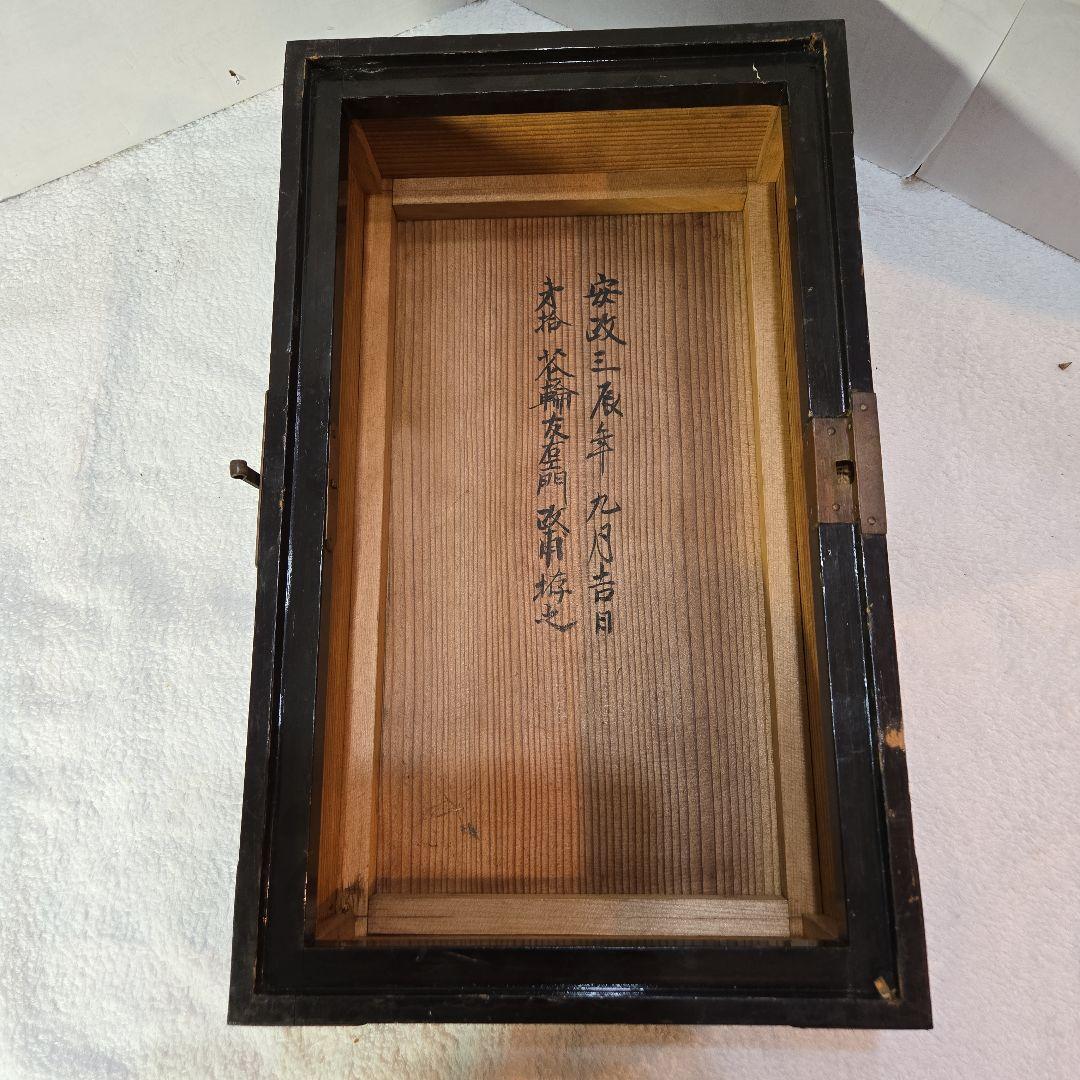 安政三辰年 九月吉日
才拾 花輪友左エ門 政用 拵之